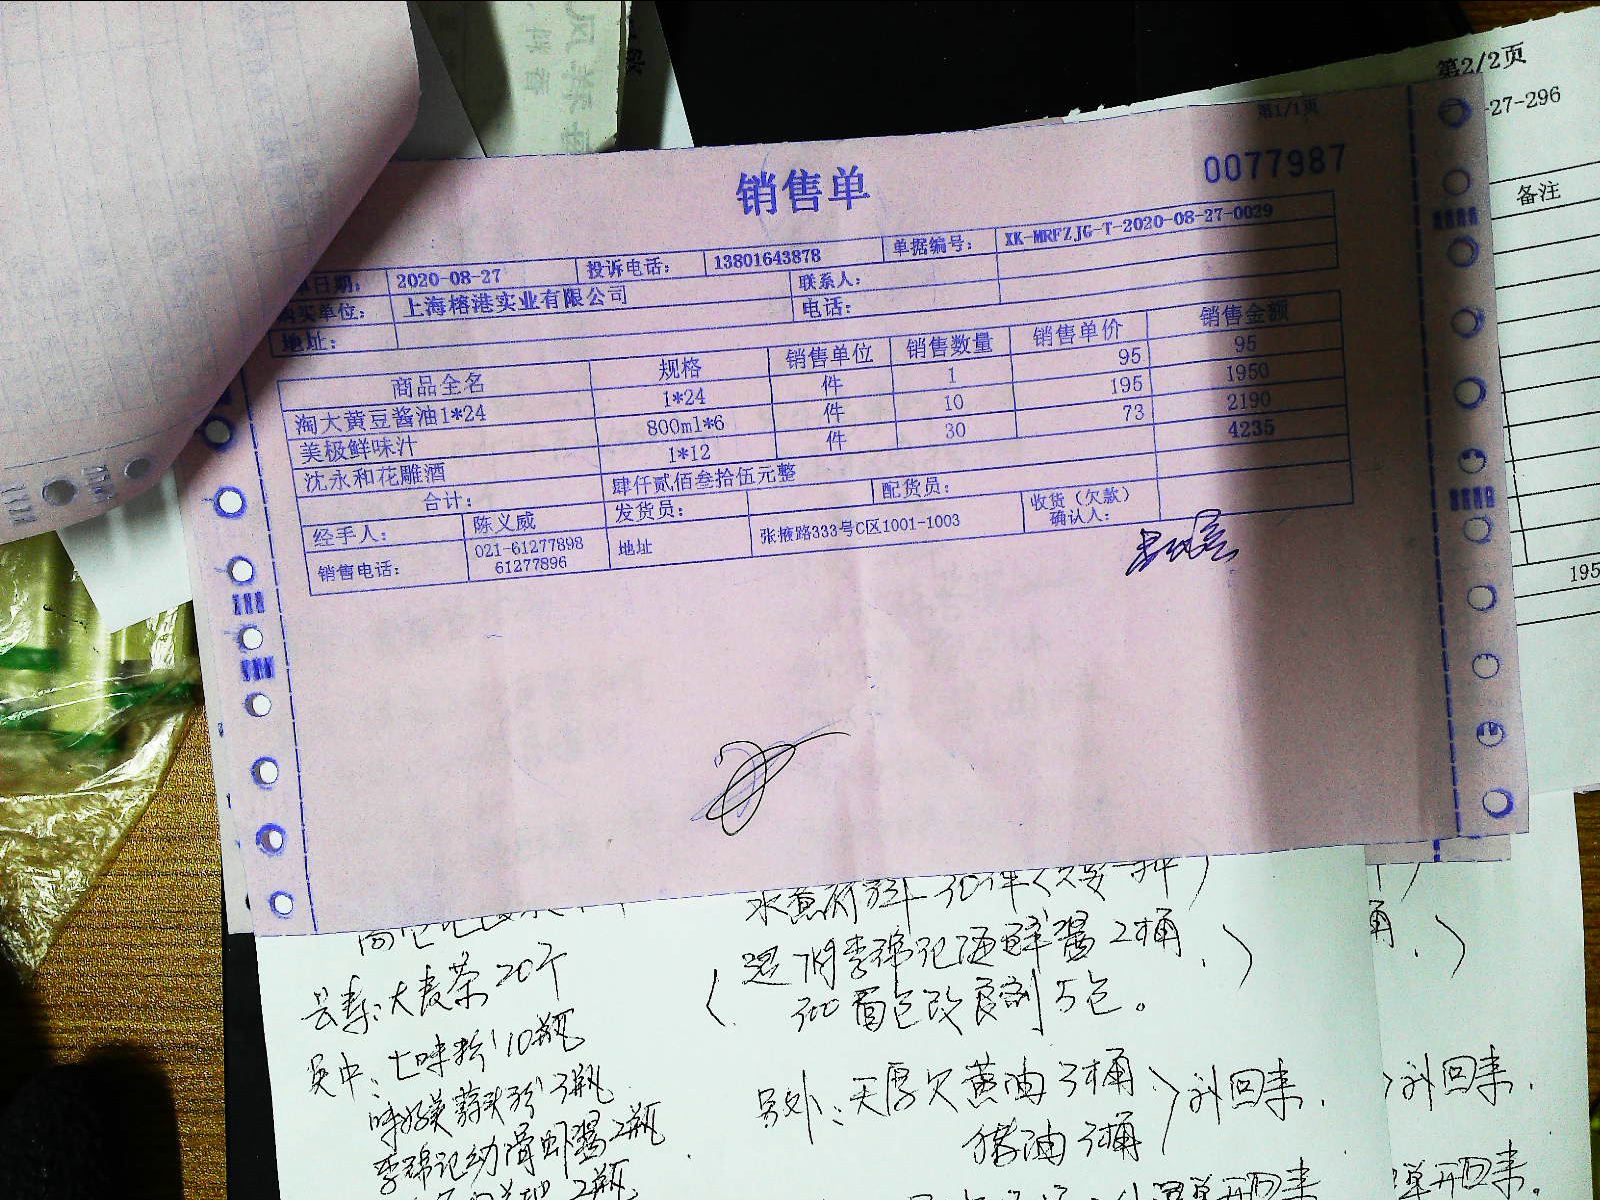 第2/2页
-27-296
备注
195
第1/1页
销售单
0077987
日期: 2020-08-27 投诉电话: 13801643878 单据编号: XK-MRFZJG-T-2020-08-27-0029
购买单位: 上海榕港实业有限公司 联系人:
地址: 电话:
商品全名 规格 销售单位 销售数量 销售单价 销售金额
淘大黄豆酱油1*24 1*24 件 1 95 95
美极鲜味汁 800ml*6 件 10 195 1950
沈永和花雕酒 1*12 件 30 73 2190
合计: 肆仟贰佰叁拾伍元整 4235
经手人: 陈义威 发货员: 配货员: 收货（欠款）确认人:
销售电话: 021-61277898 61277896 地址 张掖路333号C区1001-1003
大麦茶20个
吴中:七味粉10瓶
味好美蒜粉3瓶
李锦记幼滑虾酱2瓶
2瓶
李锦记海鲜酱2桶
300面包改良剂5包。
另外:天厚欠黄油3桶
猪油3桶
补回来.
补回来.
桶